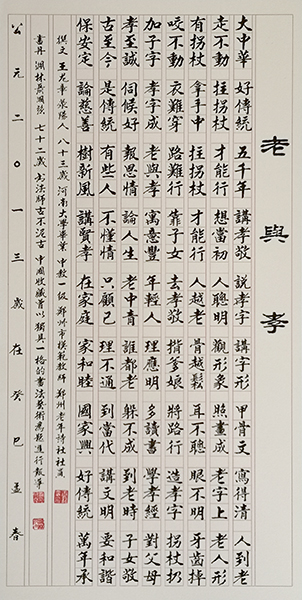 老與孝
大中華 好傳統 五千年 講孝敬 說孝字 講字形 甲骨文 寫得清 人到老
走不動 拄拐杖 才能行 想當初 人聰明 觀形象 照畫成 老字上 老人形
有拐杖 拿手中 拄拐杖 才能行 人越老 骨越鬆 耳不聰 眼不明 牙齒掉
咬不動 衣難穿 路難行 靠子女 去孝敬 揹爹娘 將路行 造孝字 拐杖扔
加子字 孝字成 老與孝 寓意豐 年輕人 理應明 多讀書 學孝經 對父母
孝至誠 伺候好 報恩情 論人生 老中青 誰都老 躲不成 到老時 子女敬
古至今 是傳統 有些人 不懂情 只顧己 理不通 到當代 講文明 要和諧
保安定 論慈善 樹新風 講賢孝 在家庭 家和睦 國家興 好傳統 萬年承
撰文 王龙華 荥陽人 八十三歲 河南大學畢業 中教一级 鄭州市模範教師 鄭州老年詩社社員
書丹 七十二歲 书法師古不泥古 中國收藏 以獨具一格的書法藝術為題進行報導
公元二〇一三歲在癸巳孟春